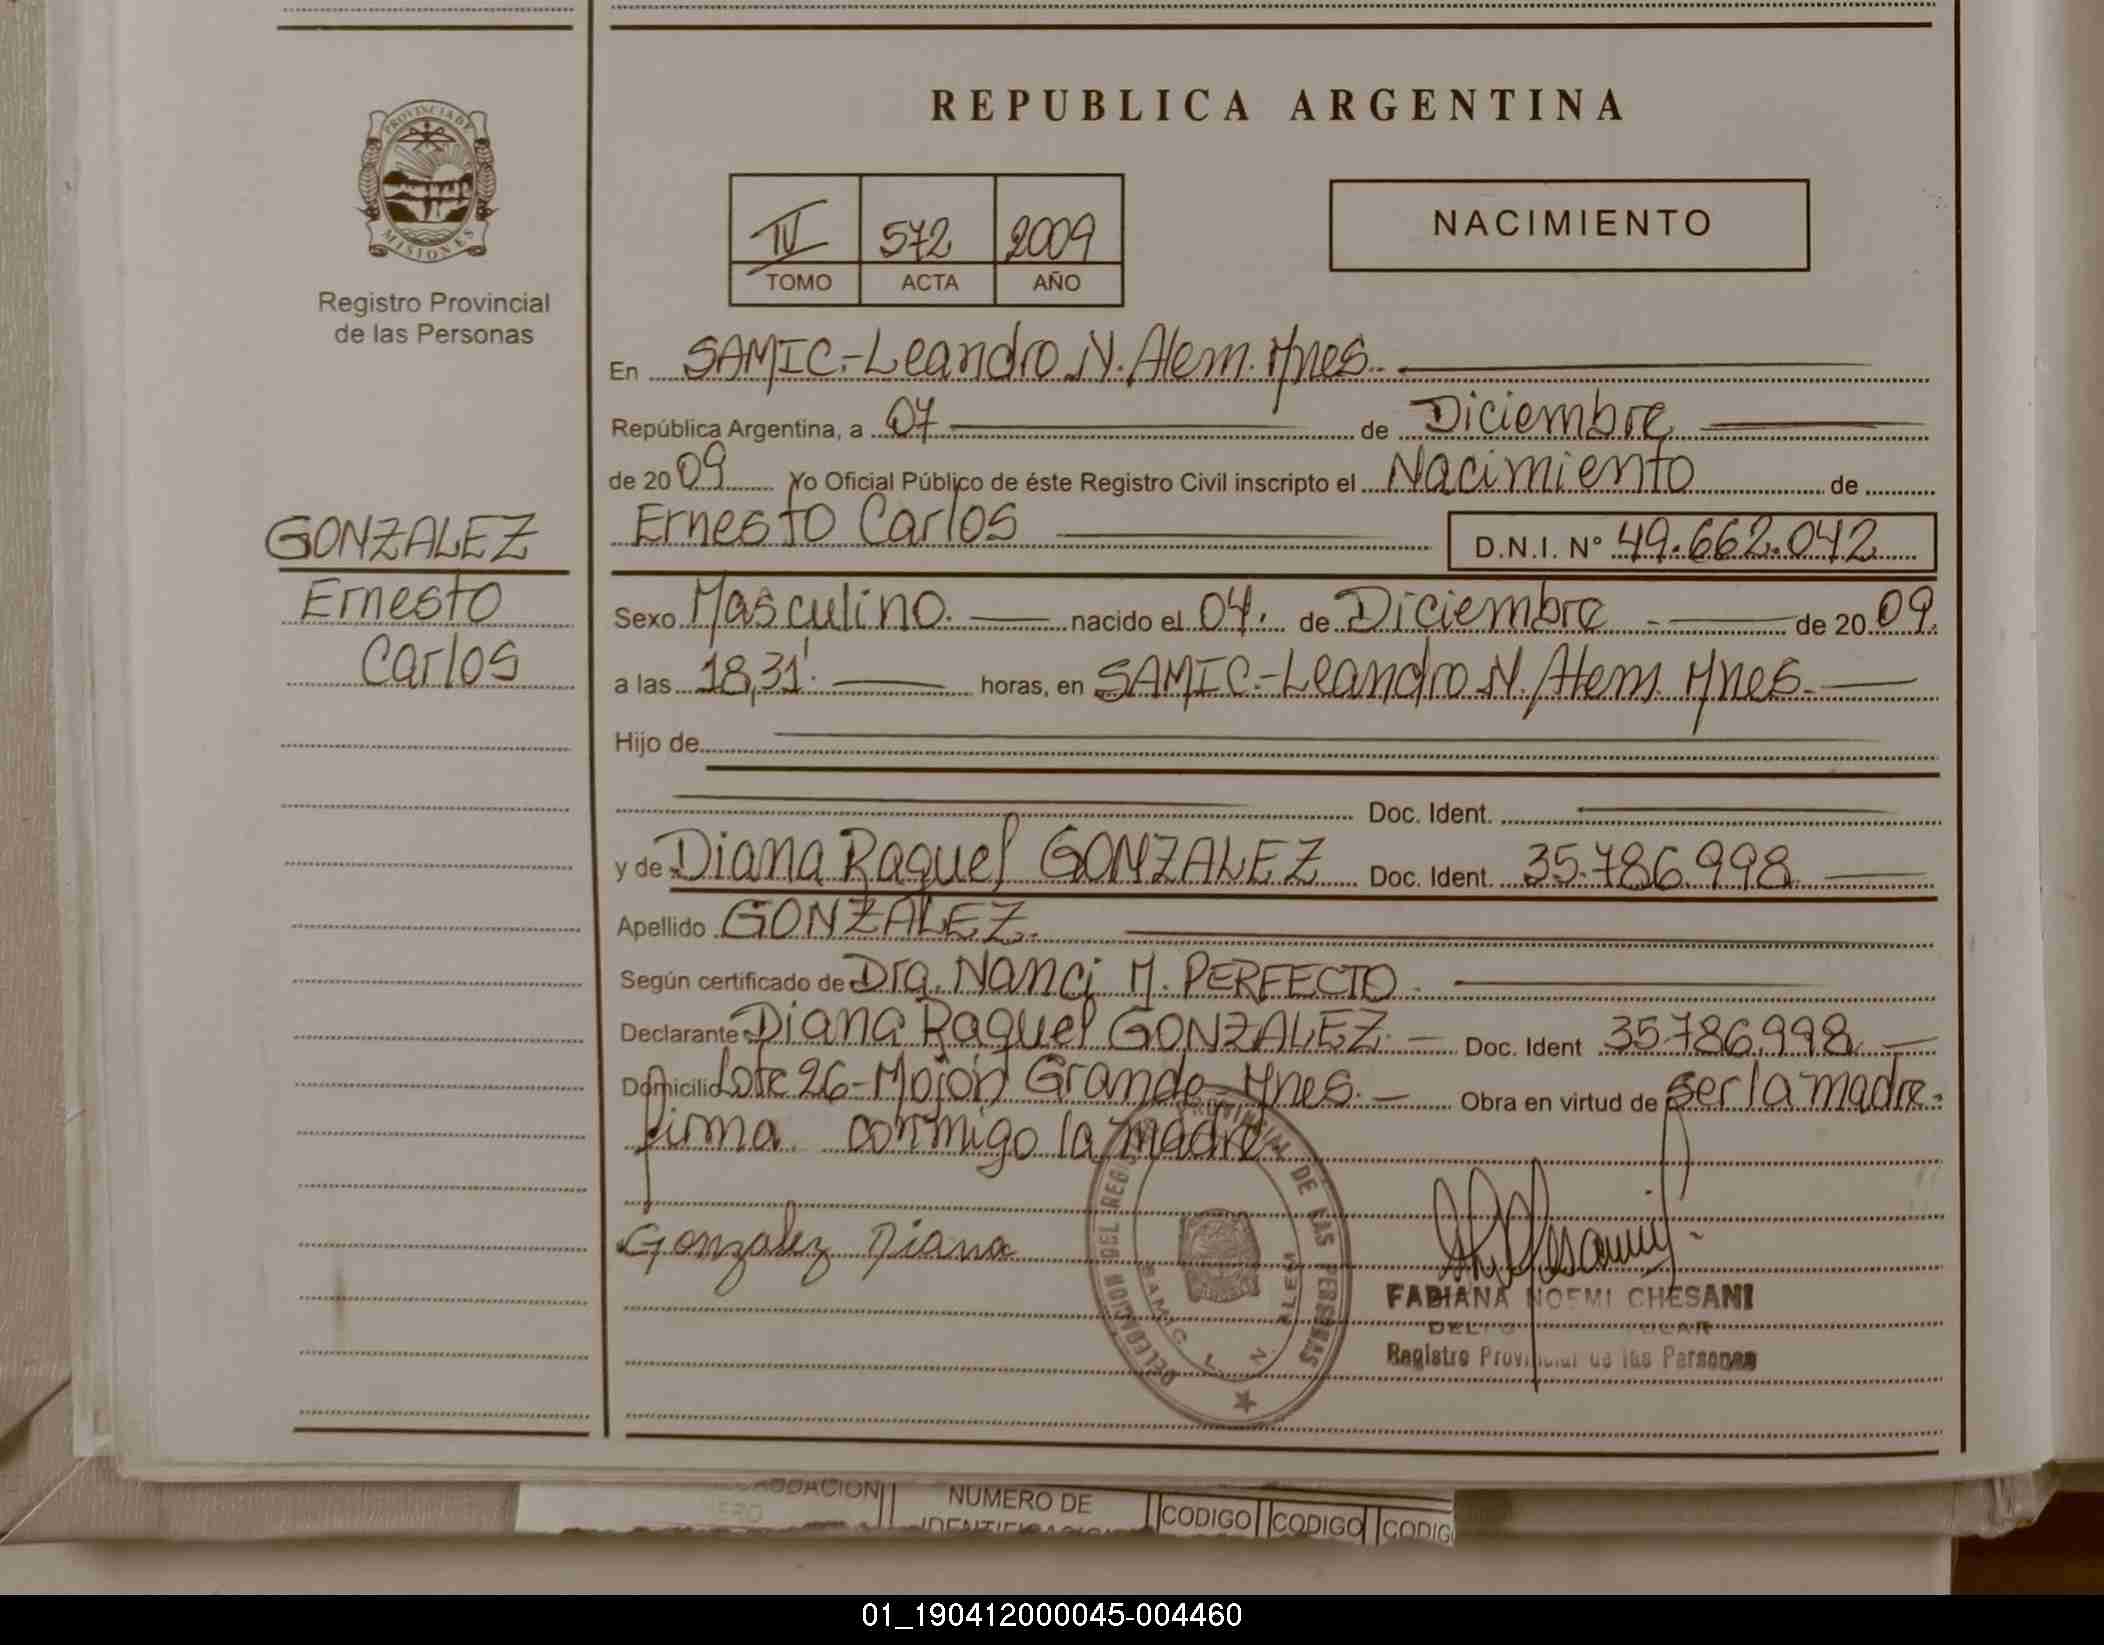 REPUBLICA ARGENTINA
PROVINCIA DE
MISIONES
Registro Provincial
de las Personas
IV 572 2009
TOMO ACTA AÑO
NACIMIENTO
En SAMIC.-Leandro N. Alem. Mnes.
República Argentina, a 07 de Diciembre
de 2009 Yo Oficial Público de éste Registro Civil inscripto el Nacimiento de
Ernesto Carlos D.N.I. N° 49.662.042
GONZALEZ
Ernesto
Carlos
Sexo Masculino. nacido el 04. de Diciembre de 2009.
a las 18,31'. horas, en SAMIC.-Leandro N. Alem. Mnes.
Hijo de
Doc. Ident.
y de Diana Raquel GONZALEZ Doc. Ident. 35.786.998
Apellido GONZALEZ.
Según certificado de Dra. Nanci M. PERFECTO.
Declarante Diana Raquel GONZALEZ. Doc. Ident 35.786.998
Domicilio Lote 26-Mojón Grande-Mnes. Obra en virtud de ser la madre.
firma conmigo la madre.
Gonzalez Diana
DELEGACION DEL REGISTRO PROVINCIAL DE LAS PERSONAS
SAMIC. L. N. ALEM
FABIANA NOEMI CHESANI
Registro Provincial de las Personas
NUMERO DE
CODIGO CODIGO CODIG
01_190412000045-004460